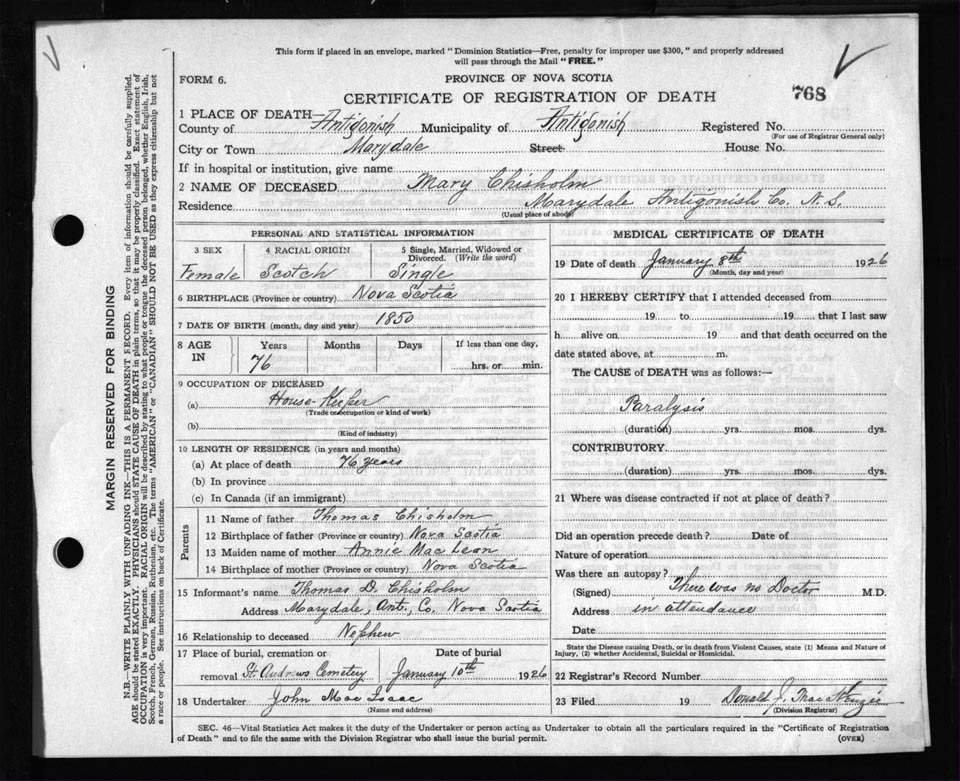 This form if placed in an envelope, marked "Dominion Statistics—Free, penalty for improper use $300," and properly addressed
will pass through the Mail "FREE."
FORM 6.
PROVINCE OF NOVA SCOTIA
CERTIFICATE OF REGISTRATION OF DEATH
768
1 PLACE OF DEATH—
County of Antigonish Municipality of Antigonish Registered No.
(For use of Registrar General only)
City or Town Marydale Street House No.
If in hospital or institution, give name
2 NAME OF DECEASED Mary Chisholm
Residence Marydale Antigonish Co. N.S.
(Usual place of abode)
PERSONAL AND STATISTICAL INFORMATION
3 SEX 4 RACIAL ORIGIN 5 Single, Married, Widowed or
Divorced. (Write the word)
Female Scotch Single
6 BIRTHPLACE (Province or country) Nova Scotia
7 DATE OF BIRTH (month, day and year) 1850
8 AGE IN Years Months Days If less than one day,
76 hrs. or min.
9 OCCUPATION OF DECEASED
(a) House-Keeper
(Trade or occupation or kind of work)
(b)
(Kind of industry)
10 LENGTH OF RESIDENCE (in years and months)
(a) At place of death 76 years
(b) In province
(c) In Canada (if an immigrant)
Parents
11 Name of father Thomas Chisholm
12 Birthplace of father (Province or country) Nova Scotia
13 Maiden name of mother Annie Mac Lean
14 Birthplace of mother (Province or country) Nova Scotia
15 Informant's name Thomas D. Chisholm
Address Marydale, Ant., Co. Nova Scotia
16 Relationship to deceased Nephew
17 Place of burial, cremation or Date of burial
removal St. Andrews Cemetery January 10th 1926
18 Undertaker John Mac Isaac
(Name and address)
MEDICAL CERTIFICATE OF DEATH
19 Date of death January 8th 1926
(Month, day and year)
20 I HEREBY CERTIFY that I attended deceased from
19 to 19 that I last saw
h alive on 19 and that death occurred on the
date stated above, at m.
The CAUSE of DEATH was as follows:—
Paralysis
(duration) yrs. mos. dys.
CONTRIBUTORY
(duration) yrs. mos. dys.
21 Where was disease contracted if not at place of death?
Did an operation precede death? Date of
Nature of operation
Was there an autopsy?
(Signed) There was no Doctor M.D.
Address in attendance
Date
State the Disease causing Death, or in death from Violent Causes, state (1) Means and Nature of
Injury, (2) whether Accidental, Suicidal or Homicidal.
22 Registrar's Record Number
23 Filed 19 Donald J.
(Division Registrar)
SEC. 46—Vital Statistics Act makes it the duty of the Undertaker or person acting as Undertaker to obtain all the particulars required in the "Certificate of Registration
of Death" and to file the same with the Division Registrar who shall issue the burial permit.
(OVER)
MARGIN RESERVED FOR BINDING
N.B.—WRITE PLAINLY WITH UNFADING INK—THIS IS A PERMANENT RECORD. Every item of information should be carefully supplied.
AGE should be stated EXACTLY. PHYSICIANS should STATE CAUSE OF DEATH in plain terms, so that it may be properly classified. Exact statement of
OCCUPATION is very important. RACIAL ORIGIN will be described by stating to what people or tongue the deceased person belonged, whether English, Irish,
Scotch, French, German, Russian, Ruthenian, etc. The terms "AMERICAN" or "CANADIAN" SHOULD NOT BE USED as they express citizenship but not
a race or people. See instructions on back of Certificate.